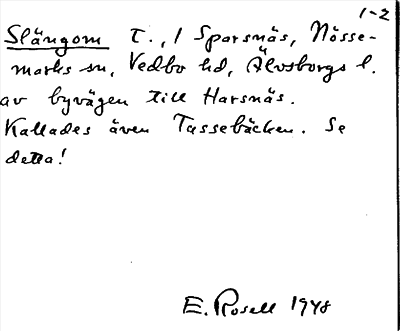 1-2
Slängom t., 1 Sparsnäs, Nösse-
marks sn, Vedbo hd, Älvsborgs l.
av byvägen till Harsnäs.
Kallades även Tassebäcken. Se
detta!
E. Rosell 1948